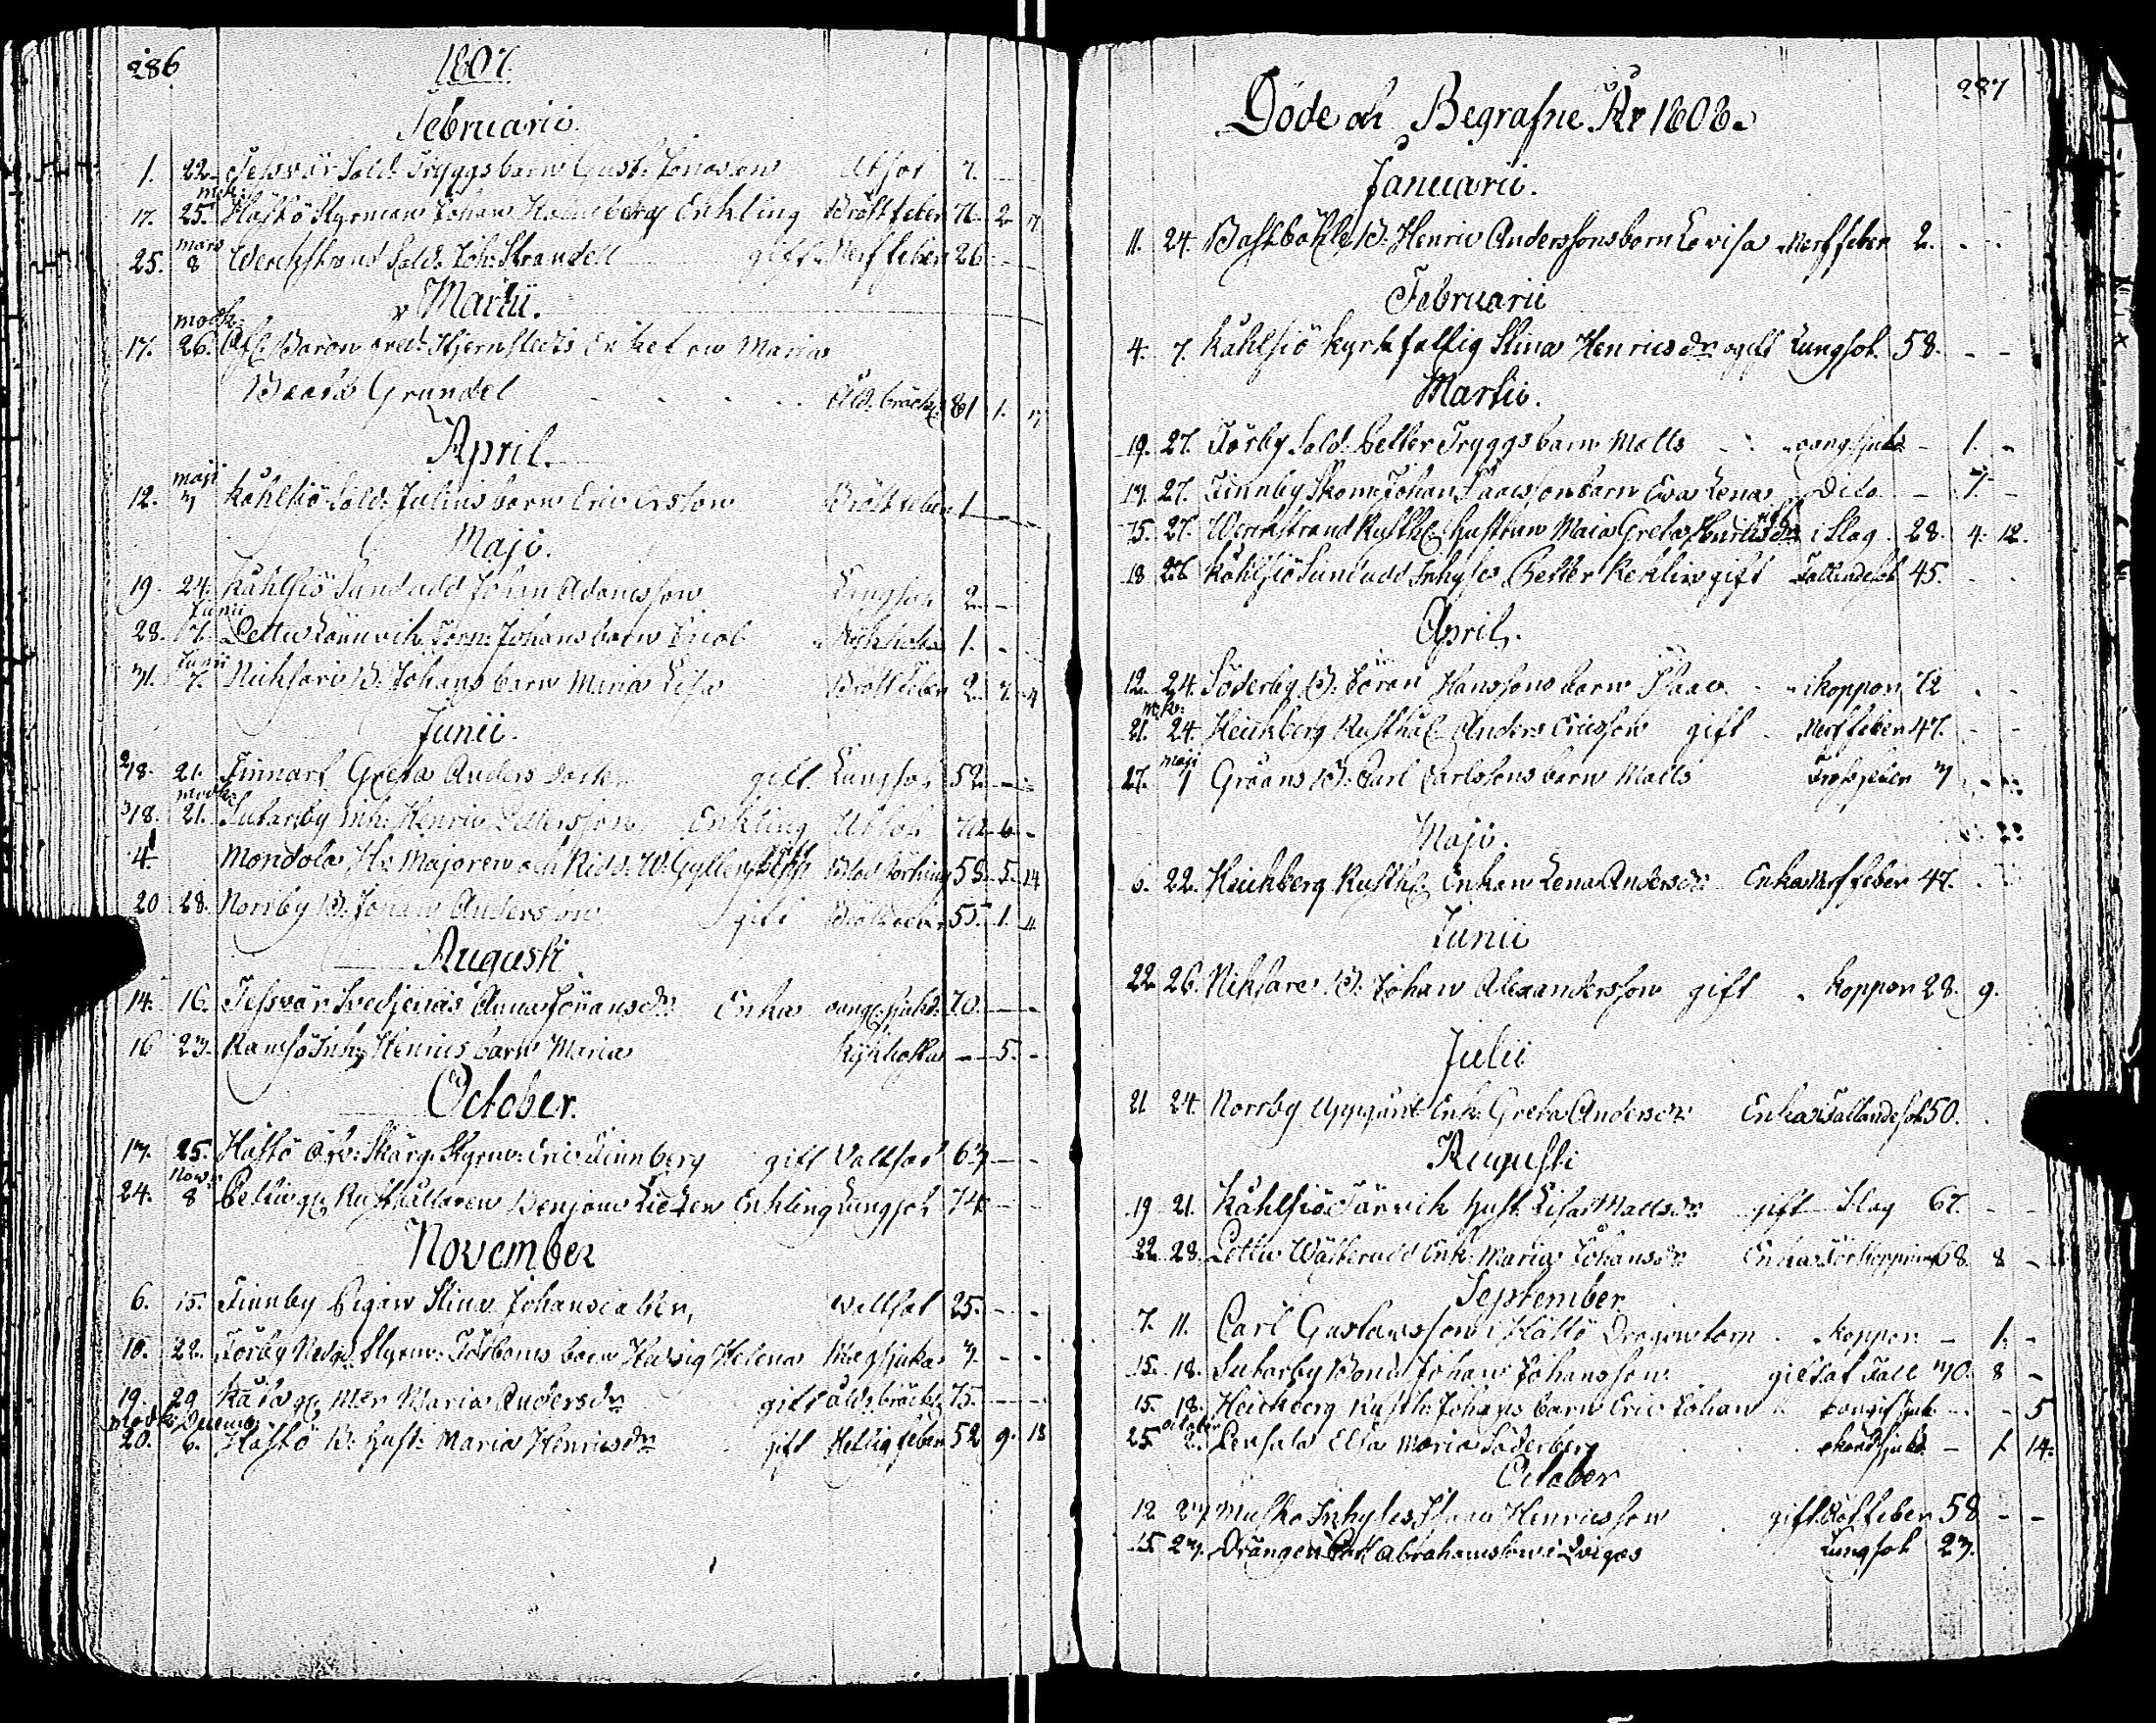 286
1807.
Februarii.
1. 22. Jessvär Sold: Tryggs barn Gust. Jonasson Utsot 7.
mod:
17. 25. Håstö Styrman Johan Holmberg Enkling Bröstfeber 71. 2 7
mars
25. 8 Werckstrand Sold: Joh: Strandell gift Nerffeber 26
Martii.
modh:
17. 26. Baron Fred: Stjernstedts Enkefru Maria
Beata Grundel Åld: bräckl: 81 1. 7
April.
maji
12. 3 Kåhlsiö Sold: Julius barn Eric Ersson Bröstfeber 1
Maji.
19. 24. Kåhlsiö Sundudd Johan Adamsson Lungsot 2
Junii
28. 7. Pettu Lönnvik Torn: Johans barn Jacob Kikhosta 1.
Junii
31. 7. Nicksari B: Johans barn Maria Lisa Bröstfeber 2. 7. 4
Junii.
18. 21. Finnarf Greta Andersdotter gift Lungsot 52.
modh:
18. 21. Sutarby inh: Henric Pettersson Enkling Utsot 72 6
4. Mondola H: Majoren och Ridd: W. Blodstörtning 58 5. 14
20 28. Norrby B: Johan Andersson gift Bröstfeber 55. 1. 11
Augusti
14. 16. Jessvär Svedjenäs Anna Jöransdr Enka oangif: sjukd: 70.
16 23. Ramsö Inh: Henrics barn Maria Kikhosta 5.
October.
17. 25. Håstö Örl: Skärg: Styrm: Eric Finnberg gift Vattsot 63
Nov:
24. 8 Pettu gl: Rusthållaren Benjam: Lieten Enkling Lungsot 74
November
6. 15. Finnby Pigan Stina Johansdotter, Wattsot 25.
10. 22. Törby Nedg: Styrm: Törboms barn Hedvig Helena Magsjuka 3.
19. 29 Kåla gl: Mor Maria Andersdr gift åld: bräckl: 75.
modh: Decemb:
20. 6. Håstö B: Hust: Maria Henricsdr gift Hettig feber 52 9. 18
287
Döde och Begrafne År 1808.
Januarii.
11. 24. Bastböhle B: Henric Anderssons barn Lovisa Nerffeber 2.
Februarii
4. 7. Kåhlsiö kyrkfattig Stina Henricsdr ogift Lungsot 58.
Martii.
19. 27. Törby Sold: Petter Tryggs barn Matts oangifsjukd 1.
17. 27. Finnby Skom: Johan Isacssons barn Eva Lena Dito 7.
15. 27. Werckstrand Rusth: hustrun Maia Greta dr i Slag 28. 4. 12.
18 27. Kåhlsiö Sundudd Inhyses Petter Kehlin gift Fallandesot 45.
April.
12. 24. Söderby B: Jöran Hanssons barn Isaac i koppor 12
m:k:
21. 24. Heickberg Rusthål: Anders Ericsson gift Nerffeber 47.
maji
27. 1 Gräans B: Carl Carlssons barn Matts Frossfeber 3
Maji.
6. 22. Heickberg Rusth: Enkan Lena Andersdr Enka Nerffeber 47.
Junii
22. 26. Niksare B: Johan Alexandersson gift koppor 28. 9.
Julii
21 24. Norrby Uppgård Enk: Greta Andersdr Enka Fallandesot 50.
Augusti
19 21. Kåhlsiö Tärvik hust: Lisa Mattsdr gift Slag 67.
22. 28. Pettu Wästerudd Enk: Maria Johansdr Enka Förstoppning 68. 8
September
7. 11. Carl Gustafsson i Håstö Dragontorp koppor 1.
15. 18. Sutarby Bond: Johan Johansson gift af Fall 30. 8
15. 18. Heickberg Rusth: Johans barn Eric Johan oangif: sjuk 5
october
25 2. Persala Elsa Maria Söderberg okändsjukd. 1 14.
October
12 23. Musko Inhyses Isaac Henricsson gift Rötfeber 58
15 23. Drängen Carl Abrahamsson i Lungsot 23.